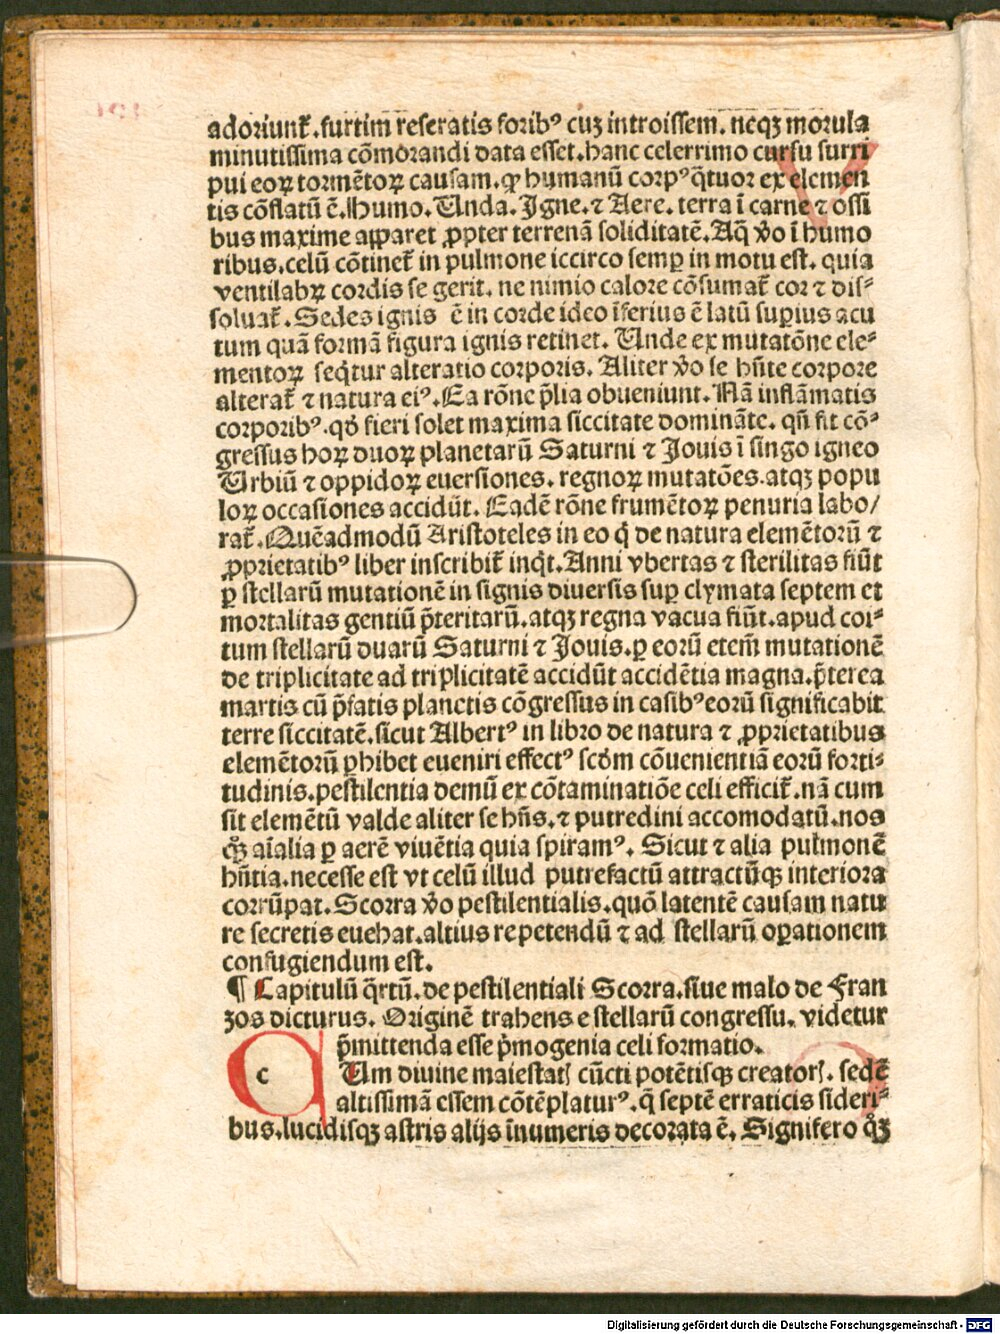 adoriunt̃. furtim reseratis forib⁹ cuʒ introissem. neqʒ morula
minutissima cõmorandi data esset. hanc celerrimo cursu surri
pui eoꝝ tormẽtoꝝ causam. ꝙ humanũ corp⁹ q̃tuor ex elemen
tis cõflatũ ẽ. Humo. Unda. Igne. ⁊ Aere. terra ĩ carne ⁊ ossi
bus maxime aꝑparet ꝓpter terrenã soliditatẽ. Aq̃ ṽo ĩ humo
ribus. celũ cõtinet̃ in pulmone iccirco semꝑ in motu est. quia
ventilabꝝ cordis se gerit. ne nimio calore cõsumat̃ cor ⁊ dis⸗
soluat̃. Sedes ignis ẽ in corde ideo ĩferius ẽ latũ suꝑius acu
tum quã formã figura ignis retinet. Unde ex mutatõne ele⸗
mentoꝝ seq̃tur alteratio corporis. Aliter ṽo se hñte corpore
alterat̃ ⁊ natura ei⁹. Ea rõne p̃lia obueniunt. Nã inflãmatis
corporib⁹. qđ fieri solet maxima siccitate dominãte. qñ fit cõ⸗
gressus hoꝝ duoꝝ planetarũ Saturni ⁊ Jouis ĩ singo igneo
Urbiũ ⁊ oppidoꝝ euersiones. regnoꝝ mutatões. atqʒ popu
loꝝ occasiones accidũt. Eadẽ rõne frumẽtoꝝ penuria labo/
rat̃. Quẽadmodũ Aristoteles in eo q̃ de natura elemẽtorũ ⁊
ꝓprietatib⁹ liber inscribit̃ inq̃t. Anni vbertas ⁊ sterilitas fiũt
ꝑ stellarũ mutationẽ in signis diuersis suꝑ clymata septem et
mortalitas gentiũ p̃teritarũ. atqʒ regna vacua fiũt. apud coi⸗
tum stellarũ duarũ Saturni ⁊ Jouis. ꝑ eorũ etem̃ mutationẽ
de triplicitate ad triplicitatẽ accidũt accidẽtia magna. p̃terea
martis cũ p̃fatis planetis cõgressus in casib⁹ eorũ significabit
terre siccitatẽ. sicut Albert⁹ in libro de natura ⁊ ꝓprietatibus
elemẽtorũ ꝓhibet eueniri effect⁹ scđm cõuenientiã eorũ forti⸗
tudinis. pestilentia demũ ex cõtaminatiõe celi efficit̃. nã cum
sit elemẽtũ valde aliter se hñs. ⁊ putredini accomodatũ. nos
qʒ aĩalia ꝑ aerẽ viuẽtia quia spiram⁹. Sicut ⁊ alia pulmonẽ
hñtia. necesse est vt celũ illud putrefactũ attractũqʒ interiora
corrũpat. Scorra ṽo pestilentialis. quõ latentẽ causam natu
re secretis euehat. altius repetendũ ⁊ ad stellarũ oꝑationem
confugiendum est.
¶ Capitulũ q̃rtũ. de pestilentiali Scorra. siue malo de Fran
zos dicturus. Originẽ trahens e stellarũ congressu. videtur
p̃mittenda esse p̃mogenia celi formatio.
c Um diuine maiestatꝭ cũcti potẽtisqʒ creatorꝭ. sedẽ
altissimã essem cõtẽplatur⁹. q̃ septẽ erraticis sideri⸗
bus. lucidisqʒ astris alijs ĩnumeris decorata ẽ. Signifero qʒ
Digitalisierung gefördert durch die Deutsche Forschungsgemeinschaft - DFG